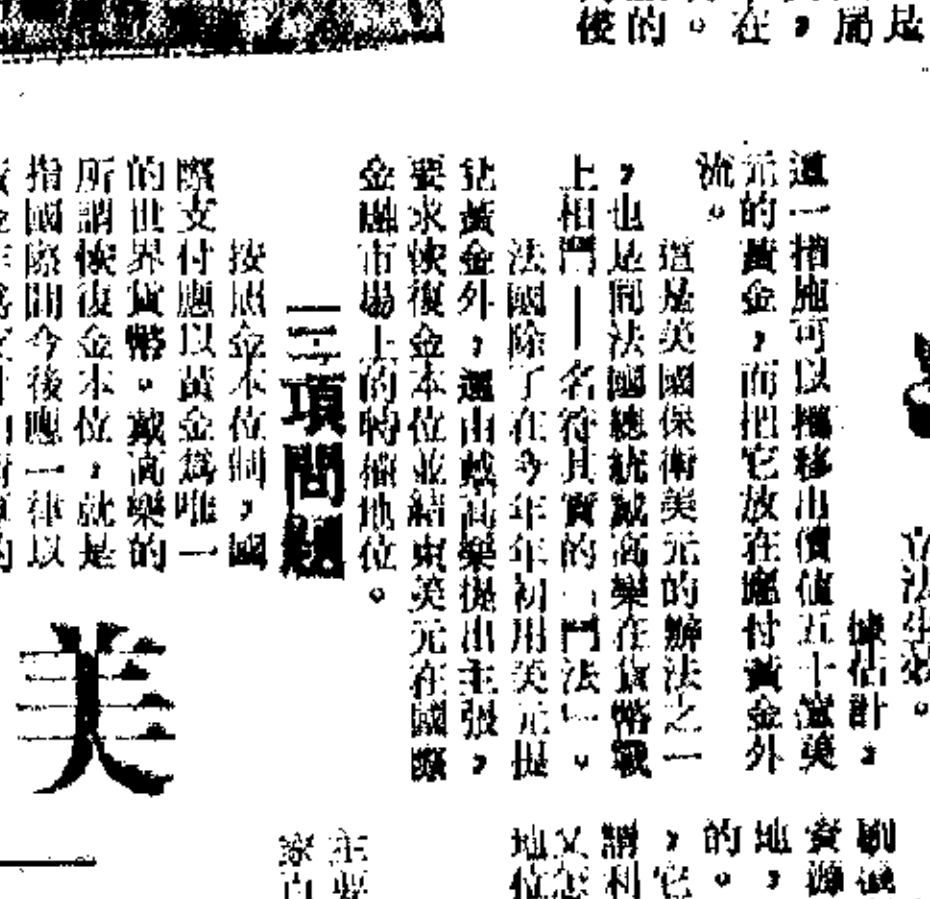 後的。在，局是
立法生效。
據估計，
這一措施可以攤移出價值五十億美
元的黃金，而把它放在應付黃金外
流。
這是美國保衛美元的辦法之一
，也是同法國總統戴高樂在貨幣戰
上相鬥—名符其實的「鬥法」。
法國除了在今年年初用美元提
黃金外，還由戴高樂提出主張，
要求恢復金本位並結束美元在國際
金融市場上的特殊地位。
三項問題
按照金本位制，國
際支付應以黃金爲唯一
的世界貨幣。戴高樂的
所謂恢復金本位，就是
指國際間今後應一律以
美
資源
地，
的。
，它
謂利
又怎
地位
主要
家自